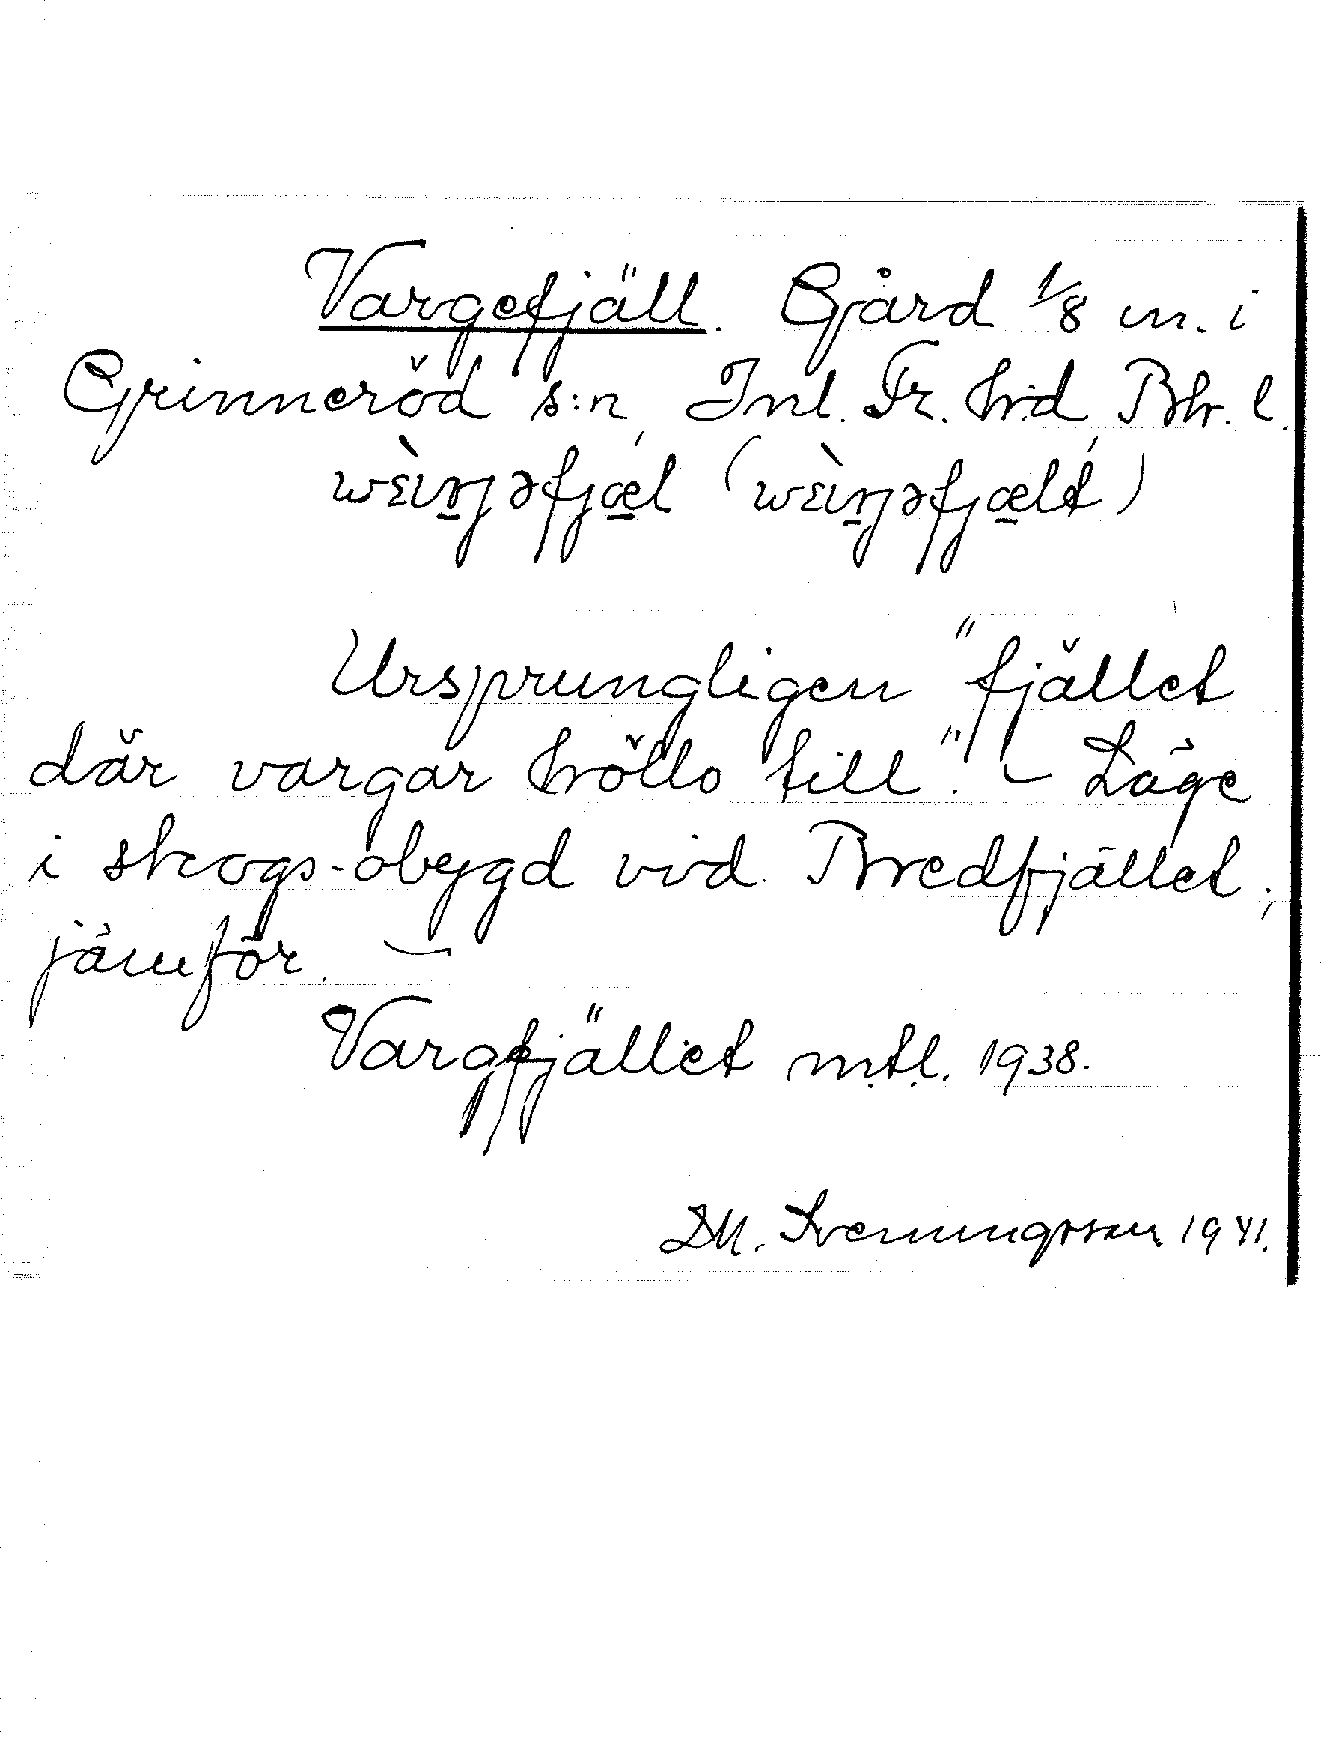 Vargefjäll. Gård 1/8 m. i
Grinneröd s:n, Inl. Fr. hd Bh. l.
Ursprungligen "fjället
där vargar höllo till". – Läge
i skogs-obygd vid Bredfjället;
jämför. –
Vargfjället mtl. 1938.
D.M. Svenungsson 1941.